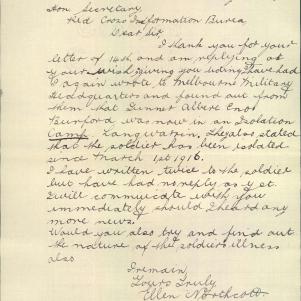 Hon Secretary
Red Cross Information Burea
Dear Sir
I thank you for your
letter of 14th and am replying at
your wish giving you tiding I have had
I again wrote to Melbourne Military
Headquarters and found out from
them that Gunner Albert Enos
Burford was now in an Isolation
Camp Langwarrin, they also stated
that the soldier has been isolated
since March 1st 1916.
I have written twice to the soldier
but have had no reply as yet.
I will communicate with you
immediately should I hear any
more news.
Would you also try and find out
the nature of the soldiers illness
also
I remain
Yours Truly
Ellen Northcott